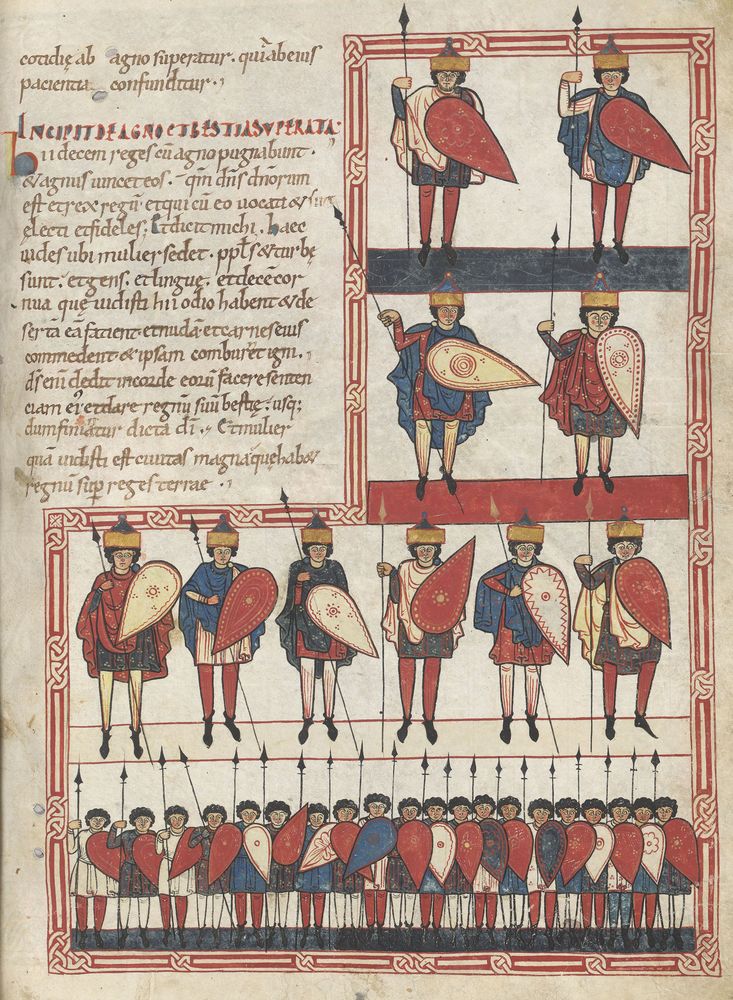 cotidię ab agno superatur. quia ab eius
pacientia confunditur.
INCIPIT DE AGNO ET BESTIA SUPERATA.
Hii decem reges cũ agno pugnabunt.
& agnus uincet eos. qm̃ dñs dñorum
est et rex regũ. et qui cũ eo uocati & sunt
electi et fideles; Et dicit michi. haec
uides ubi mulier sedet. pp̃ls & turbę
sunt. et gens. et linguę. et decẽ cor
nua quę uidisti hii odio habent & de
serta eã facient et nudã. et carnes eius
commedent & ipsam comburẽt igni.
dš enĩ dedit in corde eorũ facere senten
ciam ei et dare regnũ suũ bestię. usq;
dum finiatur dicta di. Et mulier
quã uidisti est ciuitas magna quę hab&
regnũ sup̃ reges terrae.